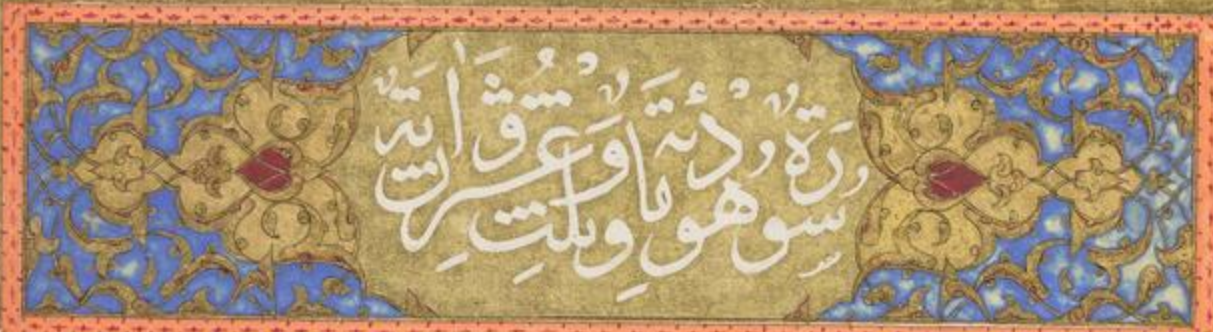 سورة هود مائة وثلث وعشرون اية